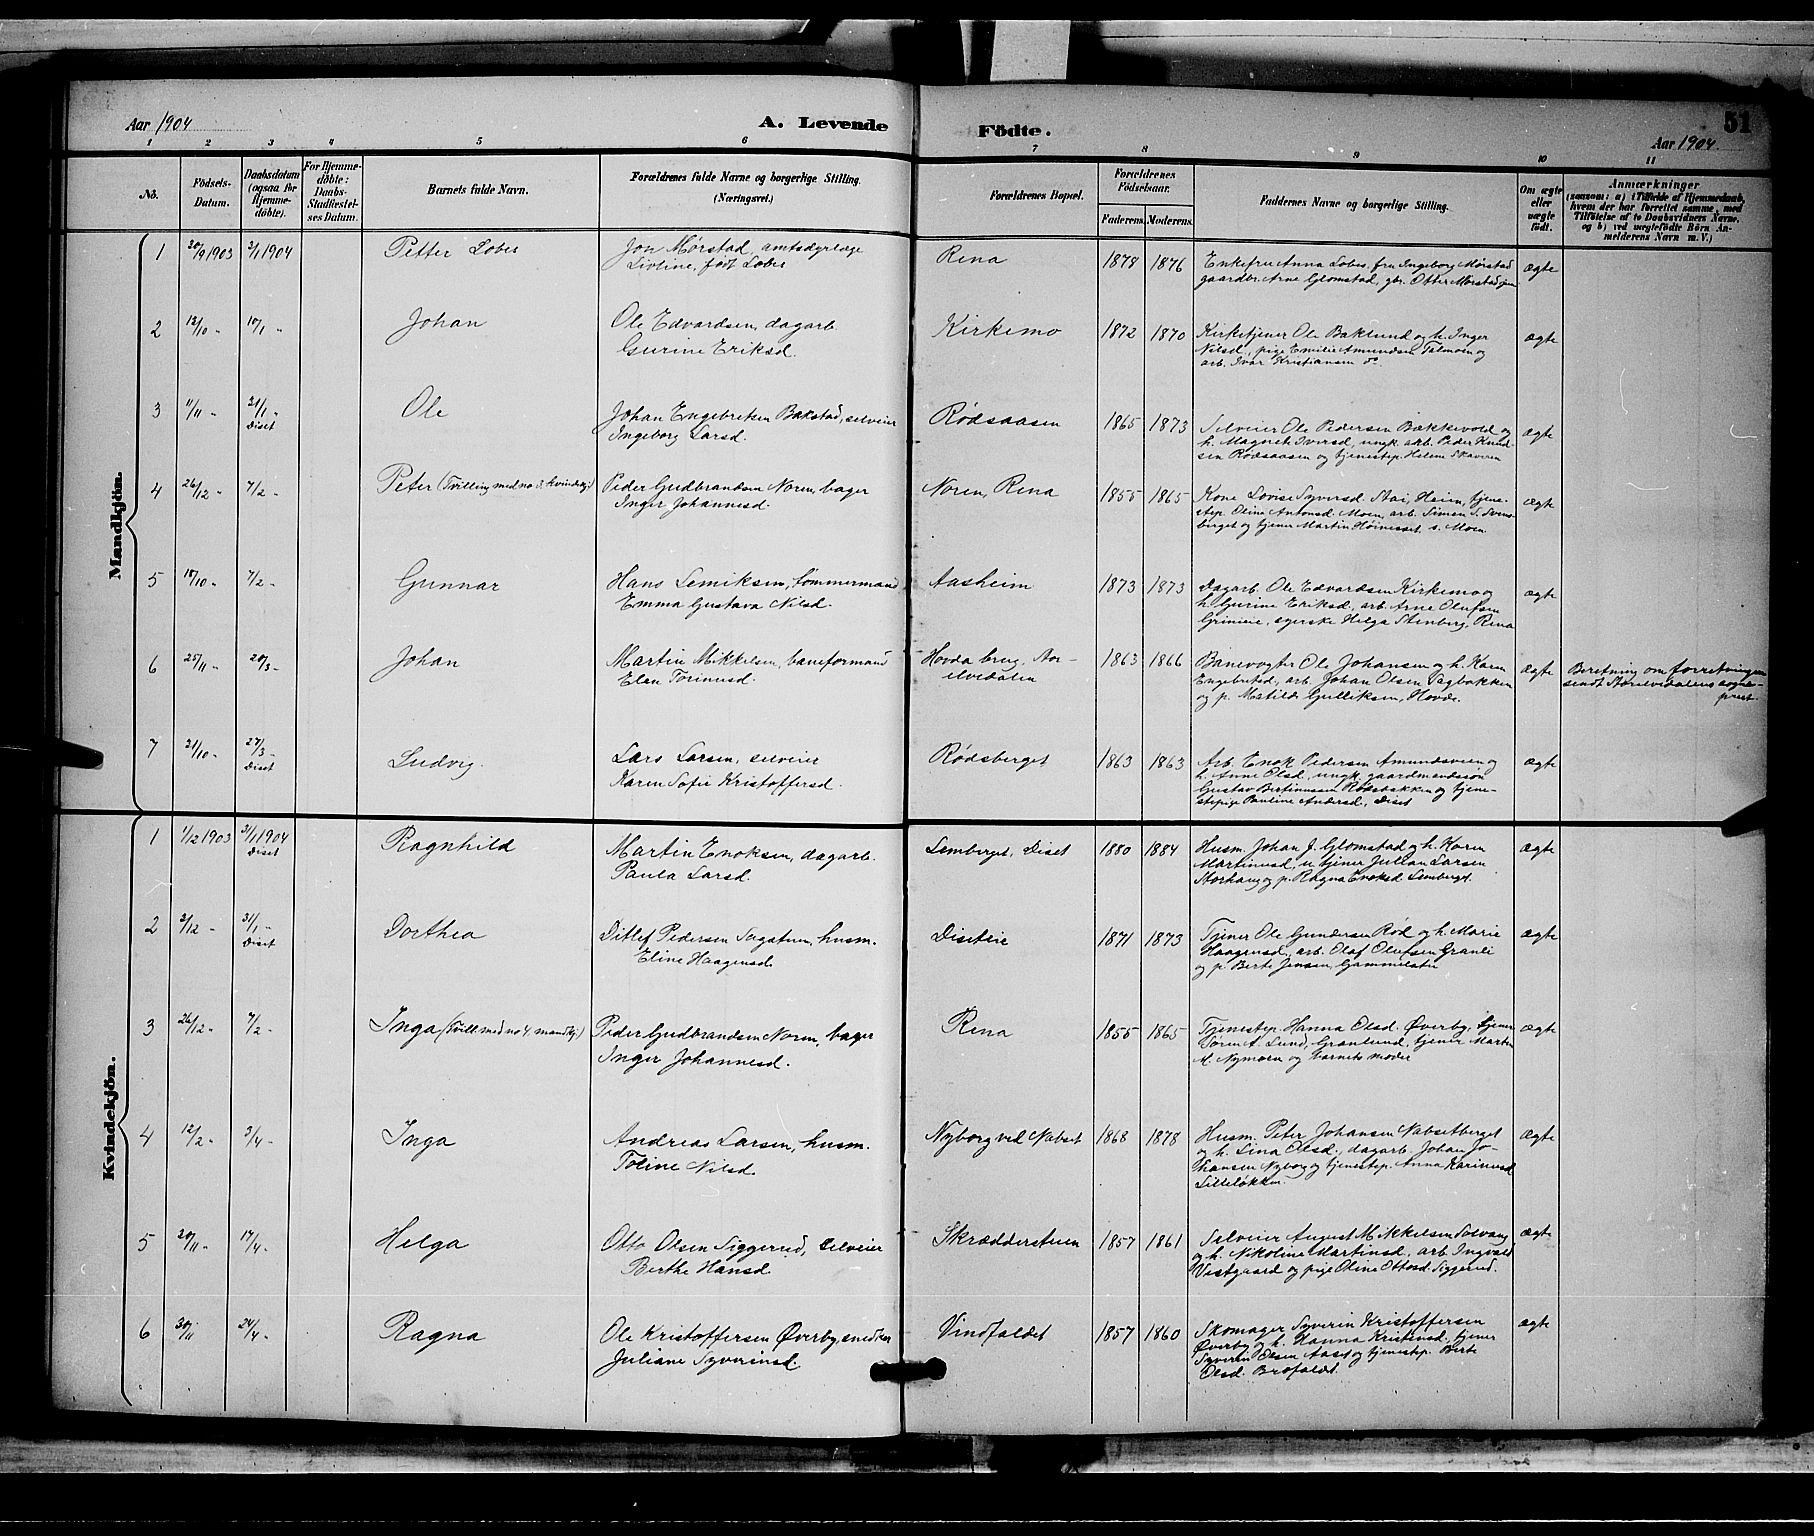 Aar 1904
A. Levende
Födte.
51
Aar 1904.
1 2 3 4 5 6 7 8 9 10 11
No.
Födsels-
Datum.
Daabsdatum
(ogsaa for
Hjemme-
döbte).
For Hjemme-
döbte:
Daabs-
Stadfæstel-
ses Datum.
Barnets fulde Navn.
Forældrenes fulde Navne og borgerlige Stilling.
(Næringsvei.)
Forældrenes Bopæl.
Forældrenes
Födselsaar.
Faderens. Moderens.
Faddernes Navne og borgerlige Stilling.
Om ægte
eller
uægte
födt.
Anmærkninger
(saasom: a) i Tilfælde af Hjemmedaab,
hvem der har forrettet samme, med
Tilföielse af to Daabsvidners Navne,
og b) ved uægtefödte Börn An-
melderens Navn m. V.)
Mandkjön.
1 30/9 1903 3/1 1904 Petter Lobes Jon Mørstad, amtsdyrlæge
Livline, født Lobes
Rena 1878 1876 Enkefru Anna Lobes, fru Ingeborg Mørstad
gaardbr. Arne Glomstad, gbr. Otter Mørstad jun
ægte
2 12/10 " 10/1 " Johan Ole Edvardsen, dagarb.
Gurine Eriksd.
Kirkemo 1872 1870 Kirketjener Ole Baklund og h. Inger
Nilsd, pige Emilie Amundsen Telmoen og
arb. Ivar Kristiansen do
ægte
3 11/11 " 31/1 "
Diset
Ole Johan Engebretsen Bakstad, selveier
Ingeborg Larsd.
Rødsaasen 1865 1873 Selveier Ole Pedersen Bakkevold og
h. Magnete Iversd, ungk. arb. Peder Knud-
sen Rødsaasen og tjenestep. Helene Skaveren
ægte
4 26/12 " 7/2 " Peter (Tvilling med no 3 kvindekj.) Peder Gudbrandsen Noren, bager
Inger Johannesd.
Noren, Rena 1855 1865 Kone Lovise Syversd. Stai, Heim, tjene-
step. Oline Antonsd. Moen, arb. Simen S. Svens-
berget og tjener Martin Hornesset s. Moen
ægte
5 15/10 " 7/2 " Gunnar Hans Lemiksen, tømmermand
Emma Gustava Nilsd.
Aasheim 1873 1873 Dagarb. Ole Edvardsen Kirkemo og
h. Gurine Eriksd., arb. Arne Olufsen
Grinieie, syerske Helga Stenberg, Rena
ægte
6 25/11 " 20/3 " Johan Martin Mikkelsen, baneformand
Elen Torinusd.
Hovda brug, Stor-
elvedalen
1863 1866 Banevogter Ole Johansen og h. Karen
Engebretsd, arb. Johan Olsen Vagbakken
og p. Matilde Gulliksen, Hovde.
ægte Beretning om forretningen
sendt Storelvedalens sogne-
prest.
7 21/10 " 27/3 "
Diset
Ludvig. Lars Larsen, selveier
Karen Sofie Kristoffersd.
Rødsberget 1863 1863 Arb. Enok Pedersen Amundsveen og
h. Anne Olsd., ungk. gaardmandssøn
Gustav Bertinussen Rødsbakken og tjene-
stepige Pauline Andersd., Diset
ægte
Kvindekjön.
1 1/12 1903 31/1 1904
Diset
Ragnhild Martin Enoksen, dagarb.
Paula Larsd.
Lemberget, Diset 1880 1884 Husm. Johan J. Glomstad og h. Karen
Martinusd., u. tjener Julian Larsen
Storhaug og p. Ragna Enoksd. Lemberget.
ægte
2 3/12 " 31/1 "
Diset
Dorthea Ditlef Pedersen Sagatun, husm.
Eline Haagensd.
Diseteie 1871 1873 Tjener Ole Gundersen Rød og h. Marie
Haagensd., arb. Olaf Olufsen Granli
og p. Berte Jensen, Gammelstu
ægte
3 26/12 " 7/2 " Inga (Tvill. med no 4, mandkj.) Peder Gudbrandsen Noren, bager
Inger Johannesd.
Rena 1855 1865 Tjenestep. Hanna Olsd. Øverby, tjener
Toren A. Lund, Granlund, tjener Martin
M. Nymoen og barnets moder
ægte
4 12/2 " 3/4 " Inga Andreas Larsen, husm.
Toline Nilsd.
Nyborg ved Nabset 1868 1878 Husm. Peter Johansen Nabsetberget
og h. Lina Olsd., dagarb. Johan Jo-
hansen Nyborg og tjenestep. Anna Karinusd
Lilleløkken.
ægte
5 20/11 " 17/4 " Helga Otto Olsen Siggerud, selveier
Berthe Hansd.
Skrædderstuen 1857 1861 Selveier August Mikkelsen Solvang
og h. Nikoline Martinsd., arb. Ingvald
Vestgaard og pige Oline Ottosd. Siggerud.
ægte
6 30/11 " 24/4 " Ragna Ole Kristoffersen Øverby, snedker
Juliane Syverinsd.
Vindfaldet 1857 1860 Skomager Syverin Kristoffersen
Øverby og h. Hanna Kristensd., tjener
Syverin Olsen Aaset og tjenestep. Berte
Olsd. Brofaldet
ægte